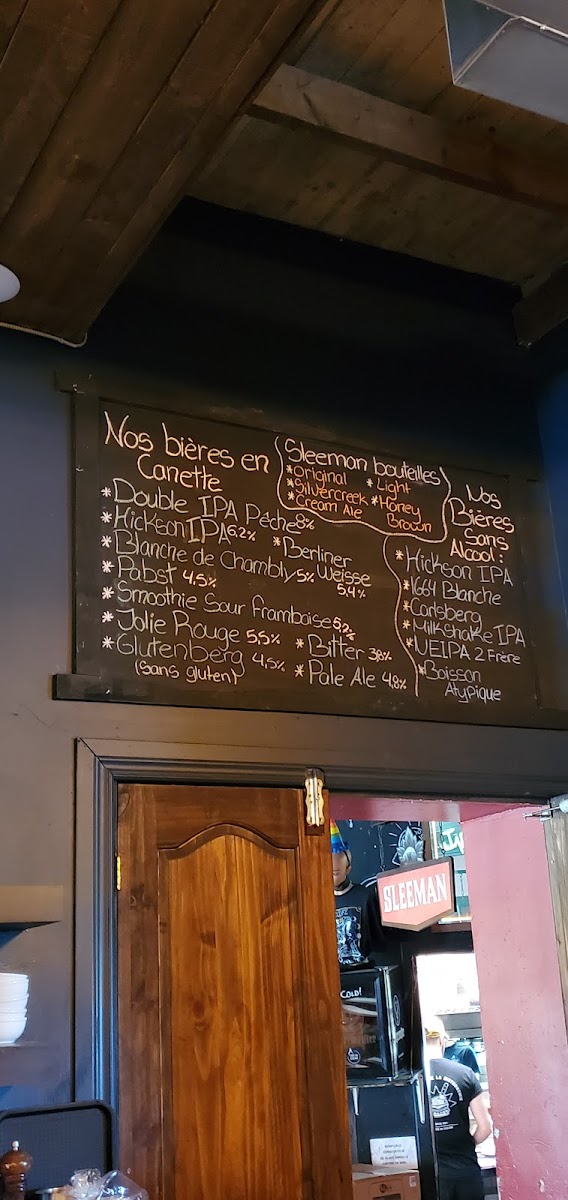 Nos bières en
Canette
*Double IPA Pêche 8%
*Hickson IPA 6.2%
*Blanche de Chambly 5%
*Pabst 4,5%
*Smoothie Sour framboise 5,7%
*Jolie Rouge 5,5%
*Glutenberg 4,5%
(Sans gluten)
*Berliner
Weisse
5,4%
*Bitter 3,8%
*Pale Ale 4,8%
Sleeman bouteilles
*Original
*Silvercreek
*Cream Ale
*Light
*Honey
Brown
Nos
Bières
Sans
Alcool :
*Hickson IPA
*1664 Blanche
*Carlsberg
*Milkshake IPA
*NEIPA 2 Frère
*Boisson
Atypique
SLEEMAN
COLD!